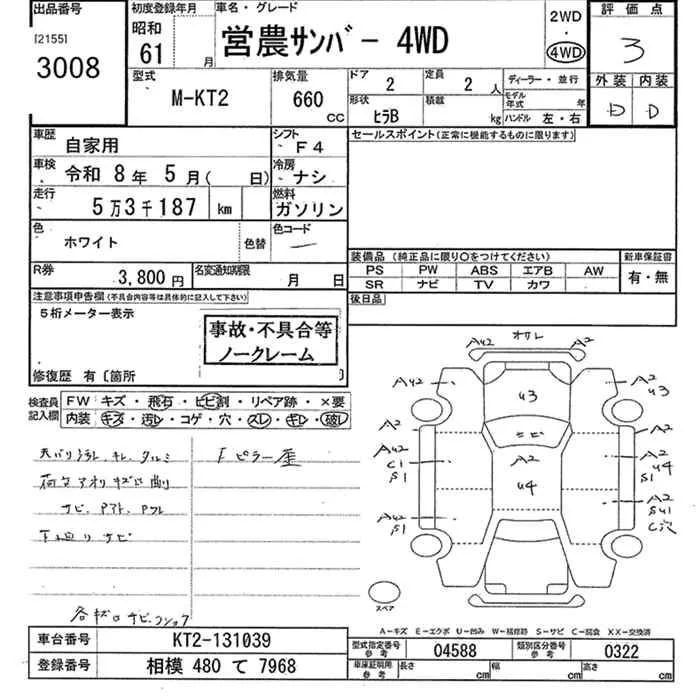 出品番号
[2155]
3008
初度登録年月
昭和
61 月
車名・グレード
営農サンバー 4WD
2WD
・
4WD
評価点
3
外装 内装
D D
型式
M-KT2
排気量
660 CC
ドア
2
定員
2 人
形状
ヒラB
積載
kg
ディーラー・並行
モデル年式 年
ハンドル 左・右
車歴
自家用
シフト
F4
車検
令和 8年 5月( 日)
冷房
ナシ
走行
5万3千187 km
燃料
ガソリン
色
ホワイト
色替
色コード
R券
3,800円
名変通知期限
月 日
セールスポイント(正常に機能するものに限ります)
装備品 (純正品に限り〇をつけてください)
新車保証書
PS PW ABS エアB AW
SR ナビ TV カワ
有・無
後日品
注意事項申告欄(不具合内容等は具体的に記入して下さい)
5桁メーター表示
事故・不具合等
ノークレーム
修復歴 有〔箇所
検査員
記入欄
FW キズ・飛石・ヒビ割・リペア跡・×要
内装 キズ・汚レ・コゲ・穴・スレ・キレ・破レ
荷台アオリ キズ凹
サビ
下回りサビ
Fピラー
A42 A2
A42 A2
43
43
A2 サビ A2
A42 A2 A2
C1 44
S1 44 S1
A42 A2
S1 S41
C穴
スペア
A－キズ E－エクボ U－凹み W－補修跡 S－サビ C－腐食 XX－交換済
車台番号
KT2-131039
登録番号
相模 480 て 7968
型式指定番号
参考
04588
類別区分番号
参考
0322
車庫証明用
参考
長さ cm 幅 cm 高さ cm